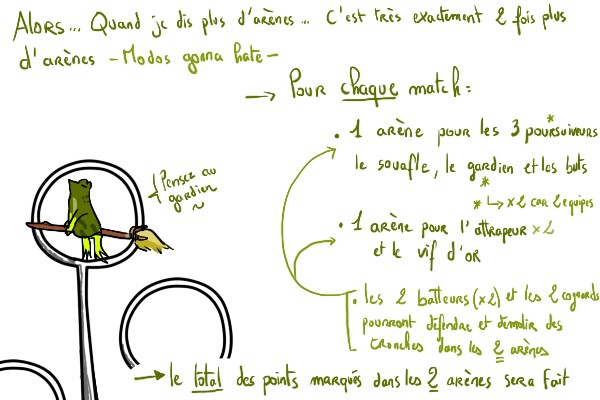 Alors... Quand je dis plus d'arènes... C'est très exactement 2 fois plus
d'arènes - Modos gonna hate -
→ Pour chaque match :
• 1 arène pour les 3 poursuiveurs*
le souafle, le gardien et les buts
*
* ↳ ×2 car 2 equipes
• 1 arène pour l'attrapeur ×2
et le vif d'or
• les 2 batteurs (×2) et les 2 cognards
pourront défendre et démolir des
tronches dans les 2 arènes
Pensez au
gardien
~
→ le total des points marqués dans les 2 arènes sera fait